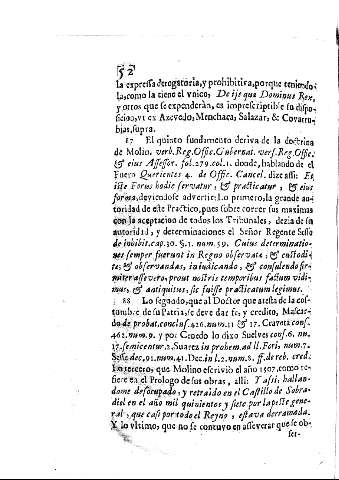 52
la expressa derogatoria, y prohibitiva, porque teniendo-
la, como la tiene el vnico, De ijs quæ Dominus Rex,
y otros que se expenderàn, es imprescriptible su dispo-
sicion, vt ex Azevedo, Menchaca, Salazar, & Covarru-
bias, supra.
87 El quinto fundamento deriva de la doctrina
de Molin. verb. Reg. Offic. Gubernat. vers. Reg. Offic.
& eius Assessor. fol. 279. col. 1. donde, hablando de el
Fuero Querientes 4. de Offic. Cancel. dize assi: Et
iste Forus hodie servatur, & practicatur, & eius
forma, deviendose advertir; Lo primero, la grande au-
toridad de este Practico, pues sobre correr sus maximas
con la aceptacion de todos los Tribunales, dezia de su
autoridad, y determinaciones el Señor Regente Sesse
de inhibit. cap. 30. §. 1. num. 59. Cuius determinatio-
nes semper fuerunt in Regno observatæ, & custodi-
tæ, & observandas, in iudicando, & consulendo fir-
miter assevero, prout nostris temporibus factum vidi-
mus, & antiquitus, sic fuisse practicatum legimus.
88 Lo segundo, que al Doctor que atesta de la cos-
tumbre de su Patria, se deve dar fe, y credito, Mascar-
do de probat. conclus. 426. num. 11 & 17. Craveta cons.
462. num. 9. y por Creedo lo dixo Suelves cons. 6. nu.
17. semicentur. 2. Suarez in prohem. ad ll. Fori, num. 7.
Sesse dec. 01. num. 41. Dec. in l. 2. num. 8. ff. de reb. cred.
Lo tercero, que Molino escrivió el año 1507. como re-
fiere en el Prologo de sus obras, alli: Y assi, hallan-
dome desocupado, y retraido en el Castillo de Sobra-
diel en el año mil quinientos y siete por la peste gene-
ral, que casi por todo el Reyno, estava derramada.
Y lo vltimo, que no se contuvo en asseverar que se ob-
ser-